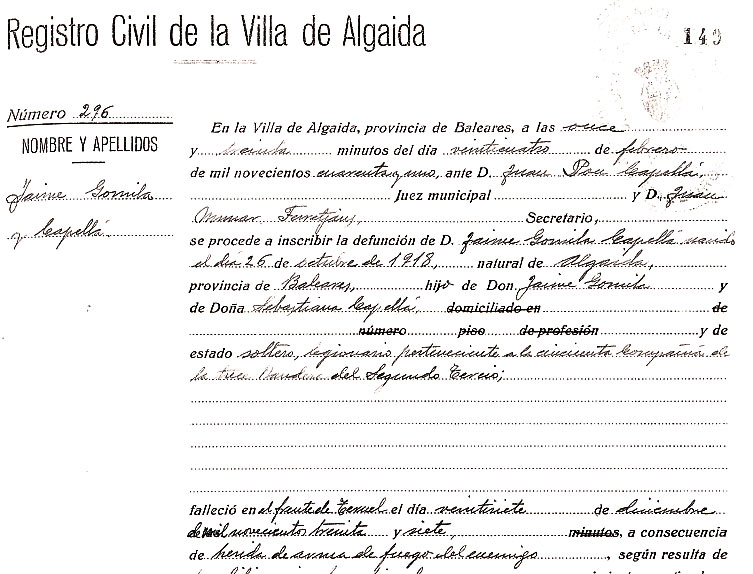 Registro Civil de la Villa de Algaida
149
Número 296
NOMBRE Y APELLIDOS
Jaime Gomila
y Capellá
En la Villa de Algaida, provincia de Baleares, a las once
y treinta minutos del día veinticuatro de febrero
de mil novecientos cuarenta y uno, ante D. Juan Pou Capellá,
Juez municipal y D. Juan
Munar Secretario,
se procede a inscribir la defunción de D. Jaime Gomila Capellá nacido
el dia 26 de octubre de 1918, natural de Algaida,
provincia de Baleares, hijo de Don. Jaime Gomila y
de Doña Sebastiana Capellá, domiciliado en de
número piso de profesión y de
estado soltero, legionario perteneciente a la cincuenta Compañia de
la trece Bandera del Segundo Tercio;
falleció en el frente de Teruel el día veintisiete de diciembre
de mil novecientos treinta y siete, minutos, a consecuencia
de herida de arma de fuego del enemigo, según resulta de